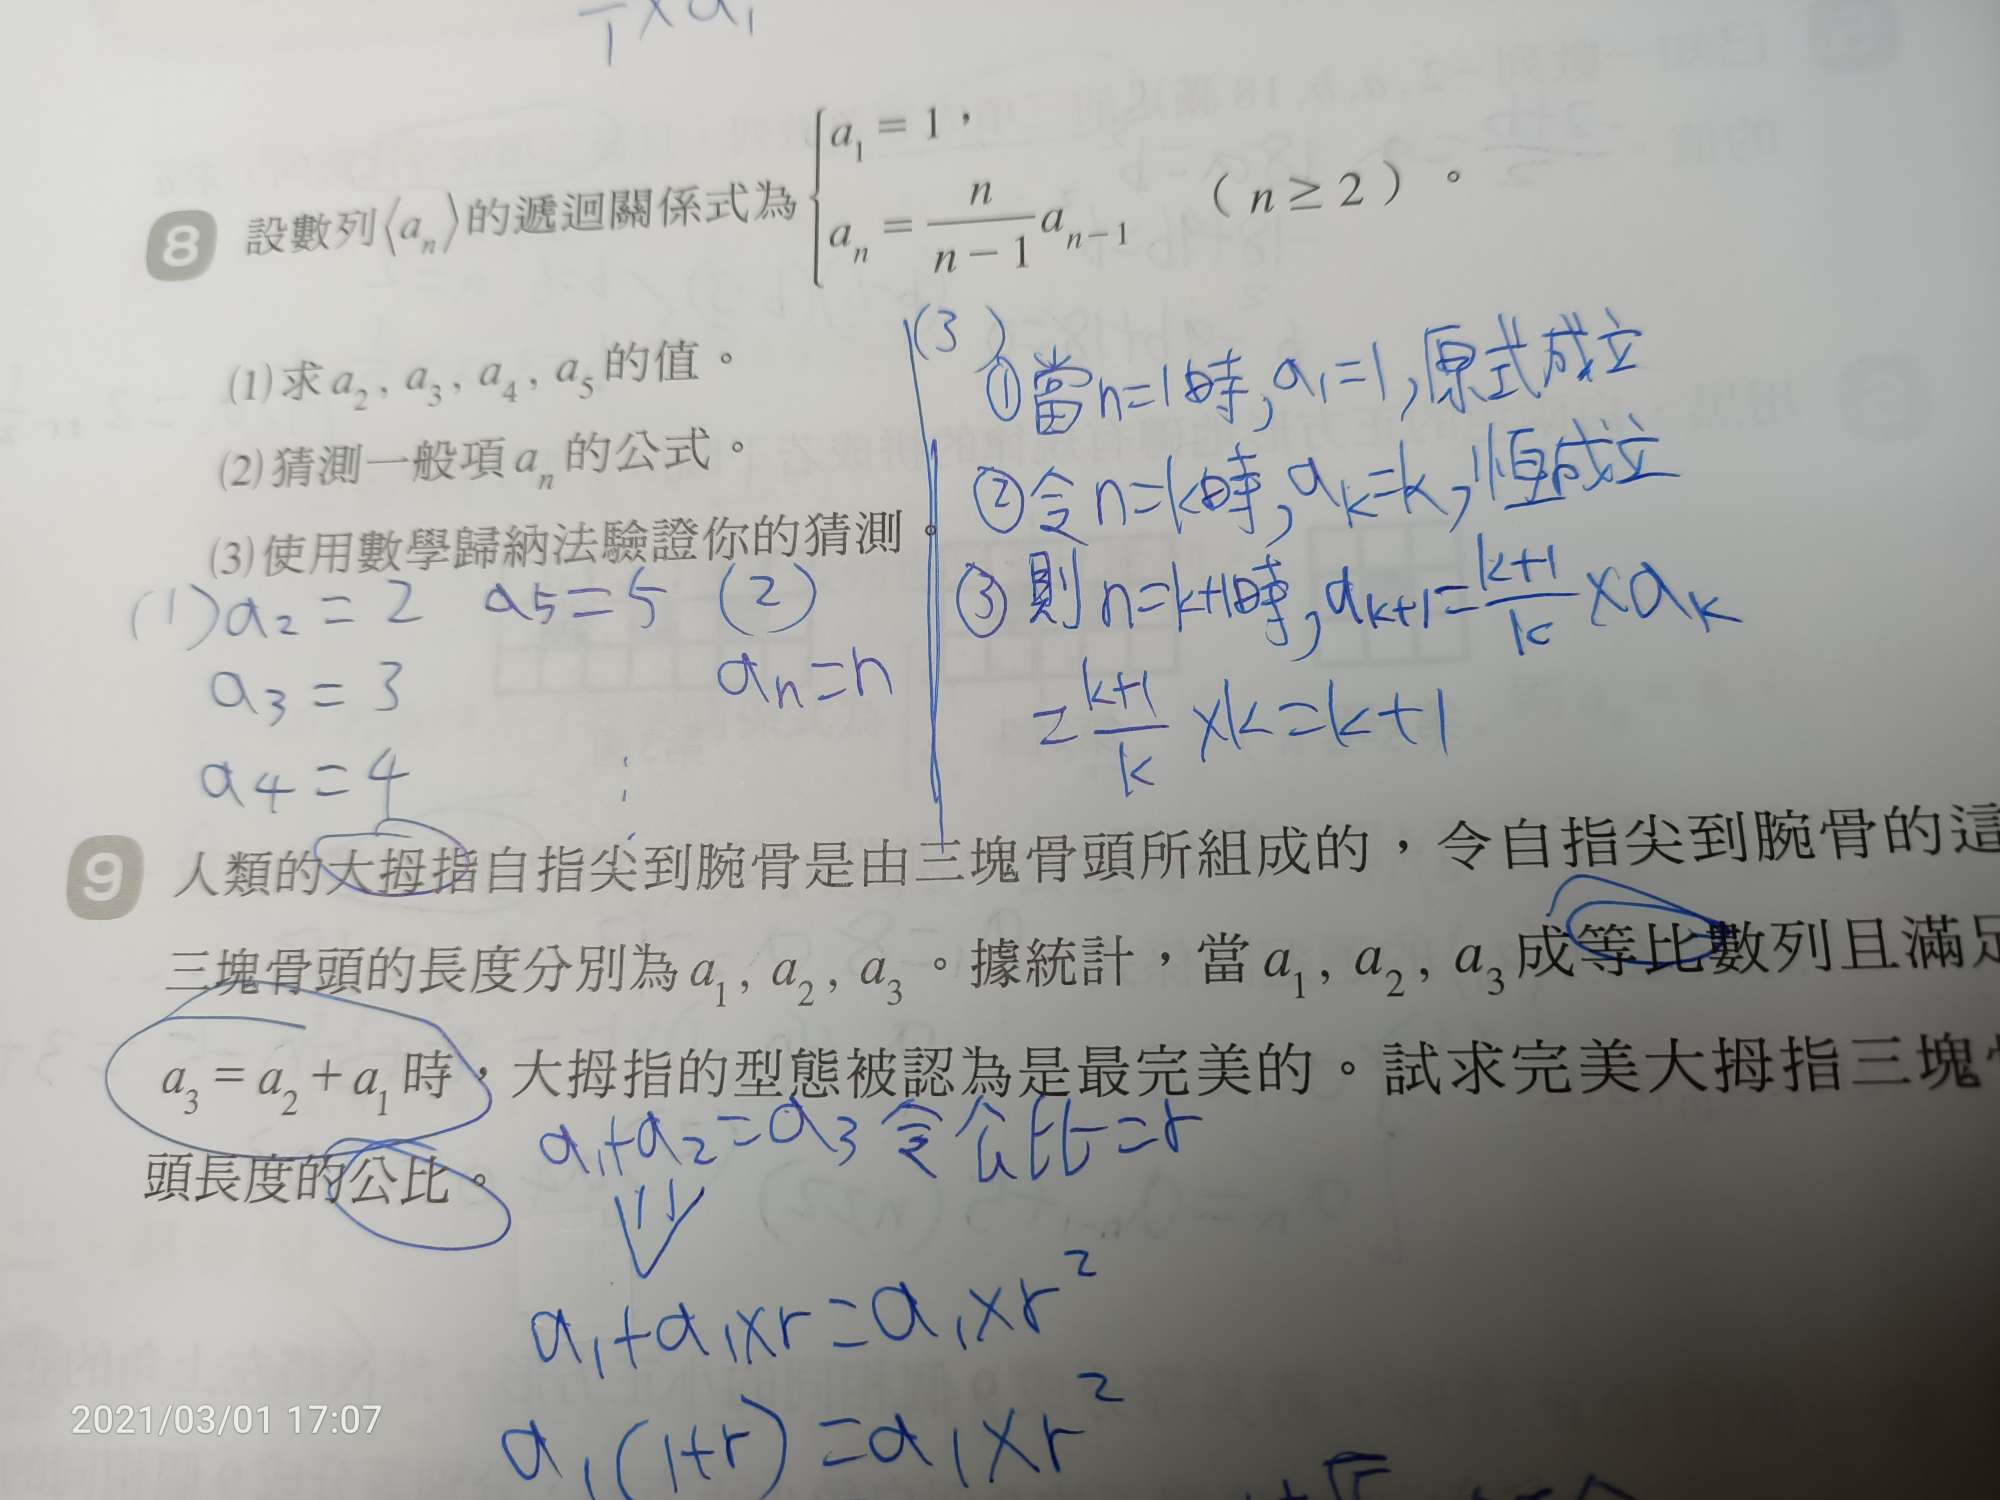 8 設數列⟨aₙ⟩的遞迴關係式為 { a₁ = 1,
aₙ = n/(n−1) aₙ₋₁ (n ≥ 2)。
(1)求 a₂, a₃, a₄, a₅ 的值。
(2)猜測一般項 aₙ 的公式。
(3)使用數學歸納法驗證你的猜測。
(1) a₂ = 2 a₅ = 5
a₃ = 3
a₄ = 4
(2)
aₙ = n
(3)
①當n=1時, a₁=1, 原式成立
②令n=k時, aₖ=k, 恆成立
③則n=k+1時, aₖ₊₁ = (k+1)/k × aₖ
= (k+1)/k × k = k+1
9 人類的大拇指自指尖到腕骨是由三塊骨頭所組成的,令自指尖到腕骨的這
三塊骨頭的長度分別為 a₁, a₂, a₃。據統計,當 a₁, a₂, a₃ 成等比數列且滿足
a₃ = a₂ + a₁ 時,大拇指的型態被認為是最完美的。試求完美大拇指三塊骨
頭長度的公比。
a₁+a₂=a₃ 令公比=r
a₁+a₁×r=a₁×r²
a₁(1+r)=a₁×r²
2021/03/01 17:07